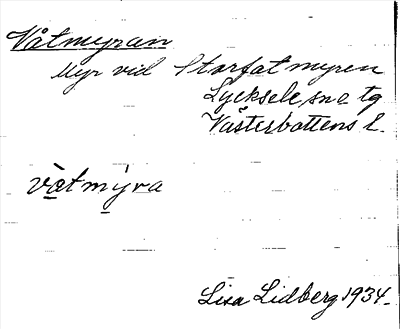 Våtmyran
Myr vid Storfatmyren
Lycksele sn o tg
Västerbottens l.
vàtmýra
Lisa Lidberg 1934.